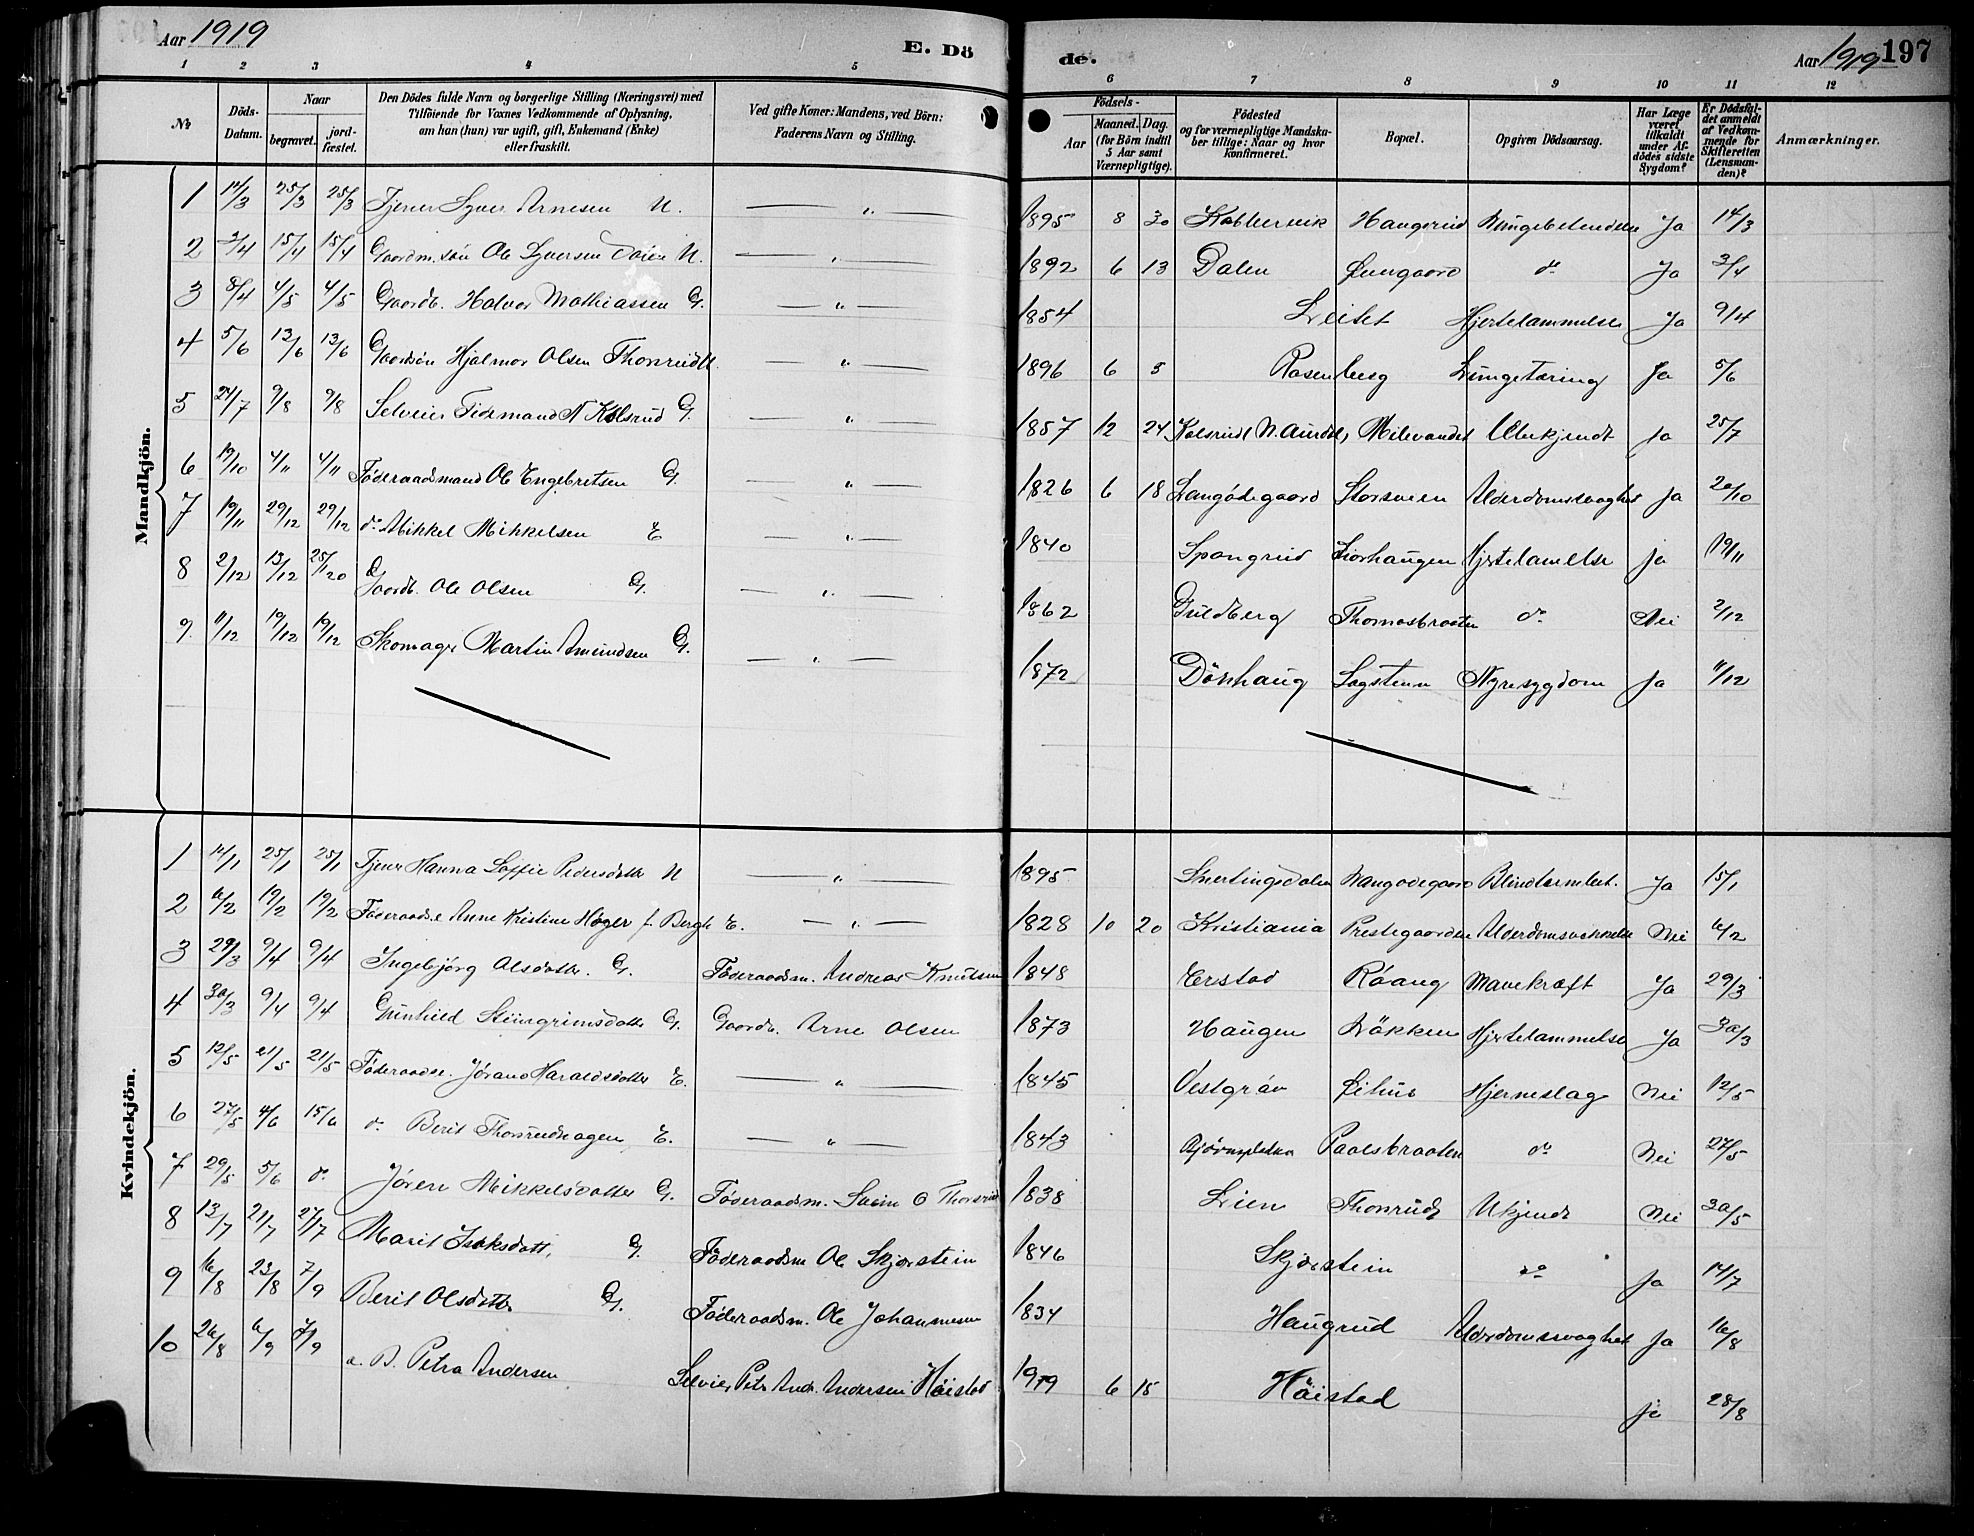 Aar 1919
E. Dö
de.
Aar 1919 197
1 2 3 4 5 6 7 8 9 10 11 12
№ Döds-Datum. Naar begravet. jord-fæstet. Den Dödes fulde Navn og borgerlige Stilling (Næringsvei) med Tilföiende for Voxnes Vedkommende af Oplysning, om han (hun) var ugift, gift, Enkemand (Enke) eller fraskilt. Ved gifte Koner: Mandens, ved Börn: Faderens Navn og Stilling.
Födsels- Aar Maaned. Dag. (for Börn indtil 5 Aar samt Værnepligtige). Födested og for værnepligtige Mandskaber tillige: Naar og hvor konfirmeret. Bopæl. Opgiven Dödsaarsag. Har Læge været tilkaldt under Afdödes sidste Sygdom? Er Dödsfaldet anmeldt af Vedkommende for Skifteretten (Lensmanden)? Anmærkninger.
Mandkjön.
1 14/3 25/3 25/3 Tjener Syver Arnesen U. — „ — 1895 8 30 Haugsrud Lungebetendelse Ja 14/3
2 2/4 15/4 15/4 Gaardm. søn Ole Syversen U. — „ — 1892 6 13 Dalen do Ja 3/4
3 8/4 4/5 4/5 Gaardb. Halvor Mathiassen G. — „ — 1854 Leitet Hjertelammelse Ja 9/4
4 5/6 13/6 13/6 Gaardsøn Hjalmar Olsen Thonrud U. — „ — 1896 6 5 Rosenberg Lungetæring Ja 5/6
5 24/7 9/8 9/8 Selveier Tidemand N Kolsrud G. — „ — 1857 12 24 Kolsrud N. Aurdal, Milevandet Ubekjendt Ja 25/7
6 19/10 4/11 4/11 Føderaadsmand Ole Engebretsen G. — „ — 1826 6 18 Langødegaard Storsveen Alderdomssvaghet Ja 20/10
7 19/11 29/12 29/12 do Mikkel Mikkelsen E — „ — 1840 Spangrud Hjertelamelse ja 19/11
8 2/12 13/12 25/11 20 Gaardb. Ole Olsen G. — „ — 1862 Guldberg Thomasbraaten do Nei 2/12
9. 11/12 19/12 19/12 Skomager Martin Amundsen G. — „ — 1872 Dönhaug Sagstuen Nyresygdom Ja 11/12
Kvindekjön.
1 14/1 25/1 25/1 Tjener Hanna Soffie Pedersdatter U — „ — 1895 Snertingsdalen Langødegaard Blindtarmbet. Ja 15/1
2 6/2 19/2 19/2 Føderaadse Anne Kristine Høger f. Bergh E. — „ — 1828 10 20 Kristiania Prestegaarden Alderdomssvækkelse Nei 6/2
3 29/3 9/4 9/4 Ingebjörg Olsdatter. G. Føderaadsm. Andreas Knutsen 1848 Erstad Röang Mavekræft Ja 29/3
4 30/3 9/4 9/4 Gunhild Steingrimsdatter G. Gaardb. Arne Olsen 1873 Haugen Løkken Hjertelammelse Ja 30/3
5 12/5 21/5 21/5 Føderaadse. Jørand Haraldsdatter E. — „ — 1845 Vestgrav Hjerneslag Nei 12/5
6 27/5 4/6 15/6 do Berit Thonrudhagen, E. — „ — 1843 Paalsbraaten do Nei 27/5
7 29/5 5/6 do Jøren Mikkelsdatter G. Føderaadsm. Svein O Thonrud 1838 Lien Thonrud Ukjendt Nei 30/5
8 13/7 21/7 27/7 Marit Isaksdatt. G. Føderaadsm Ole Skjørstein 1846 Skjørstein do Ja 14/7
9 16/8 23/8 7/9 Berit Olsdatter G. Føderaadsm. Ole Johannesen 1834 Haugrud Alderdomssvaghet Ja 16/8
10 26/8 6/9 7/9 a. B. Petra Andersen Selveier Petr Andr. Andersen Höistad 1919 6 15 Höistad ja 28/8